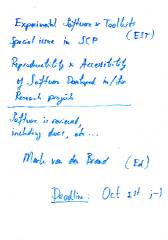 Experimental Software & Toolkits
(EST)
Special issue in SCP
Reproducibility & Accessibility
of Software Developed in/for
Research projects
Software is reviewed,
including docs, etc...
Mark van den Brand (Ed)
Deadline: Oct 1st ;-)